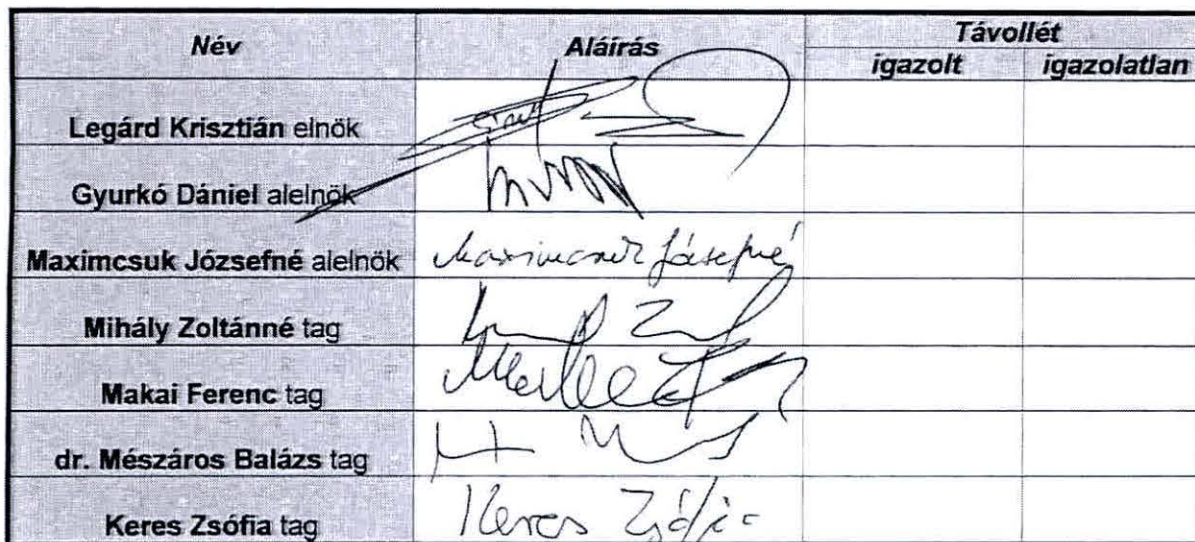 Név Aláírás Távollét
igazolt igazolatlan
Legárd Krisztián elnök
Gyurkó Dániel alelnök
Maximcsuk Józsefné alelnök Maximcsuk Józsefné
Mihály Zoltánné tag
Makai Ferenc tag
dr. Mészáros Balázs tag
Keres Zsófia tag Keres Zsófia